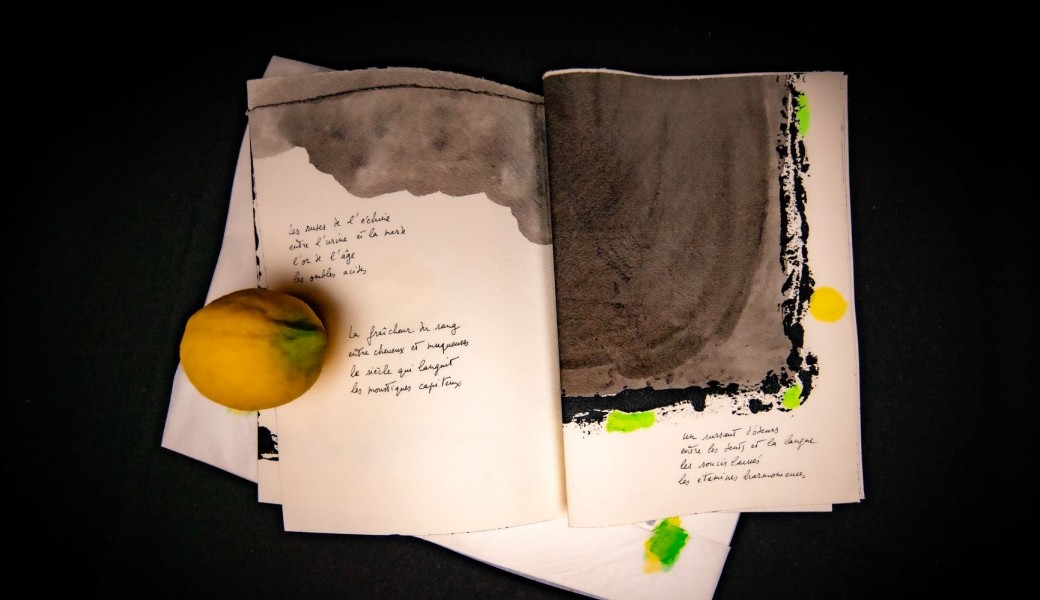 les ruses de l'échine
entre l'urine et la
l'or de l'âge
les acides
La fraîcheur du sang
entre cheveux et muqueuses
le siècle qui languit
les moustiques capiteux
un d'odeurs
entre les dents et la langue
les soucis
les étamines harmonieuses